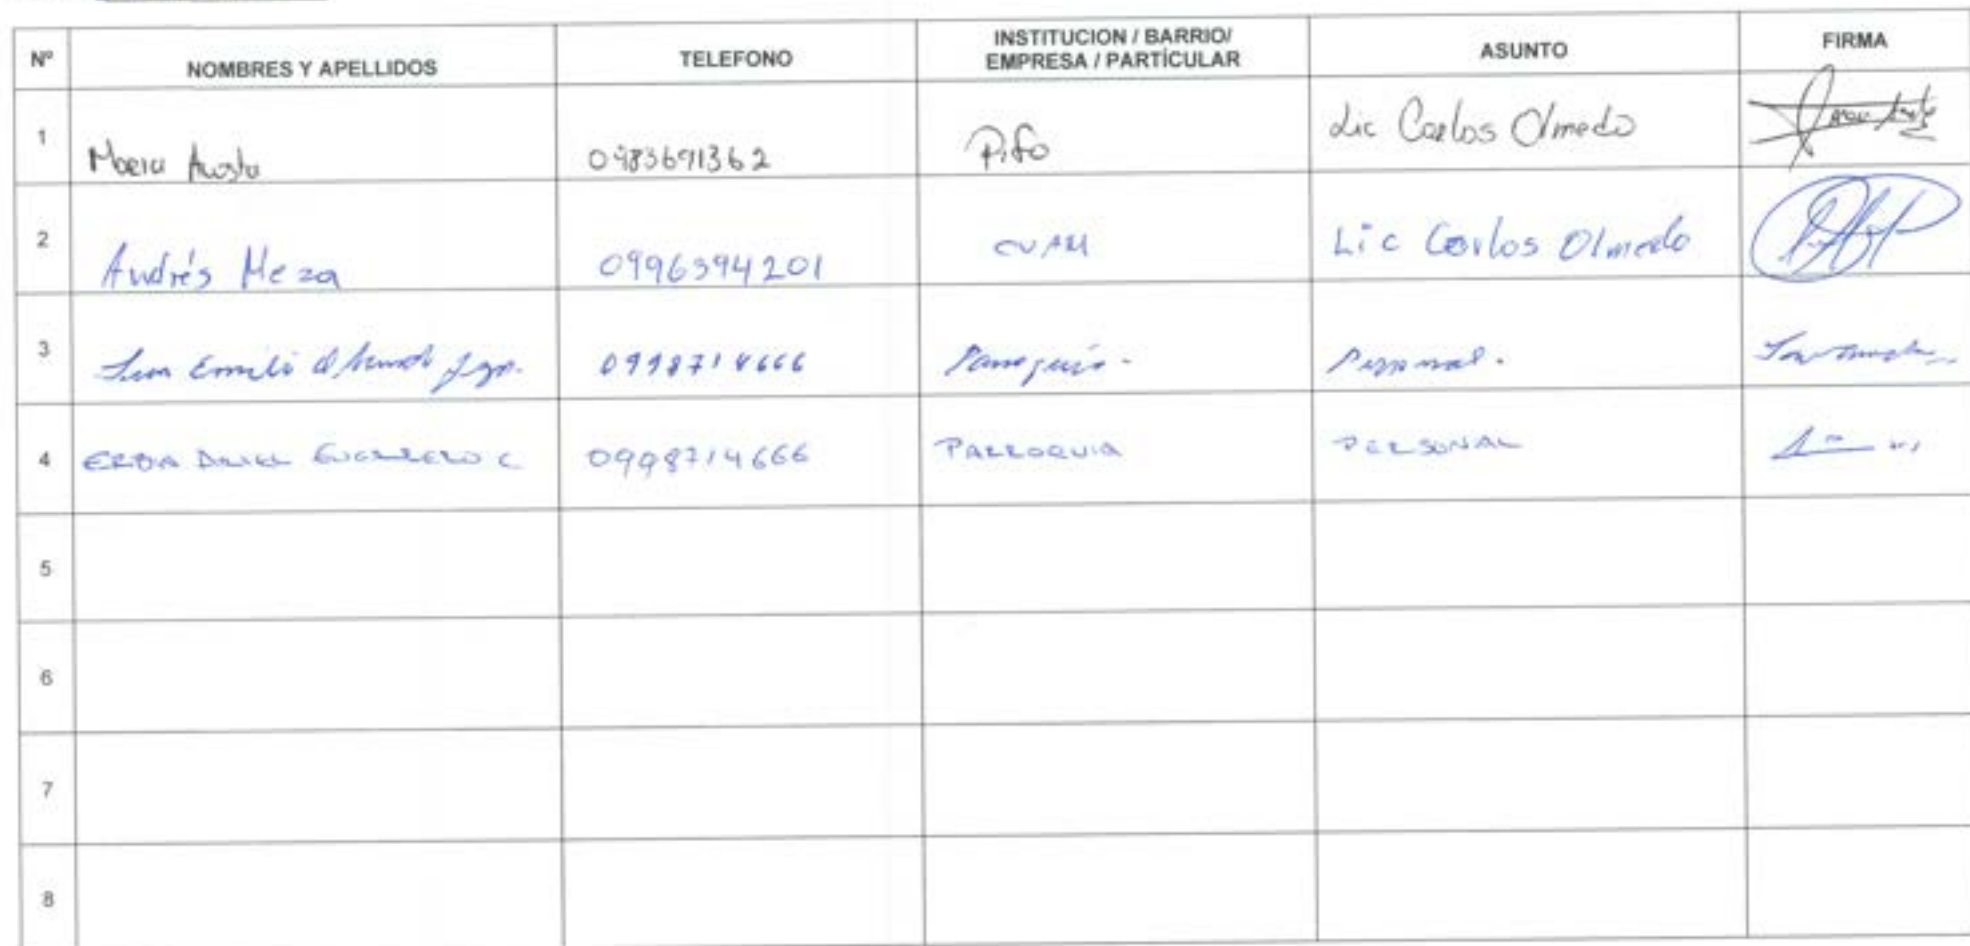 Nº NOMBRES Y APELLIDOS TELEFONO INSTITUCION / BARRIO/ EMPRESA / PARTÍCULAR ASUNTO FIRMA
1 Maria Acosta 0983691362 Pifo Lic Carlos Olmedo
2 Andrés Meza 0996394201 CVAM Lic Carlos Olmedo
3 Emilio 0998714666 Personal.
4 0998714666 PARROQUIA PERSONAL
5
6
7
8